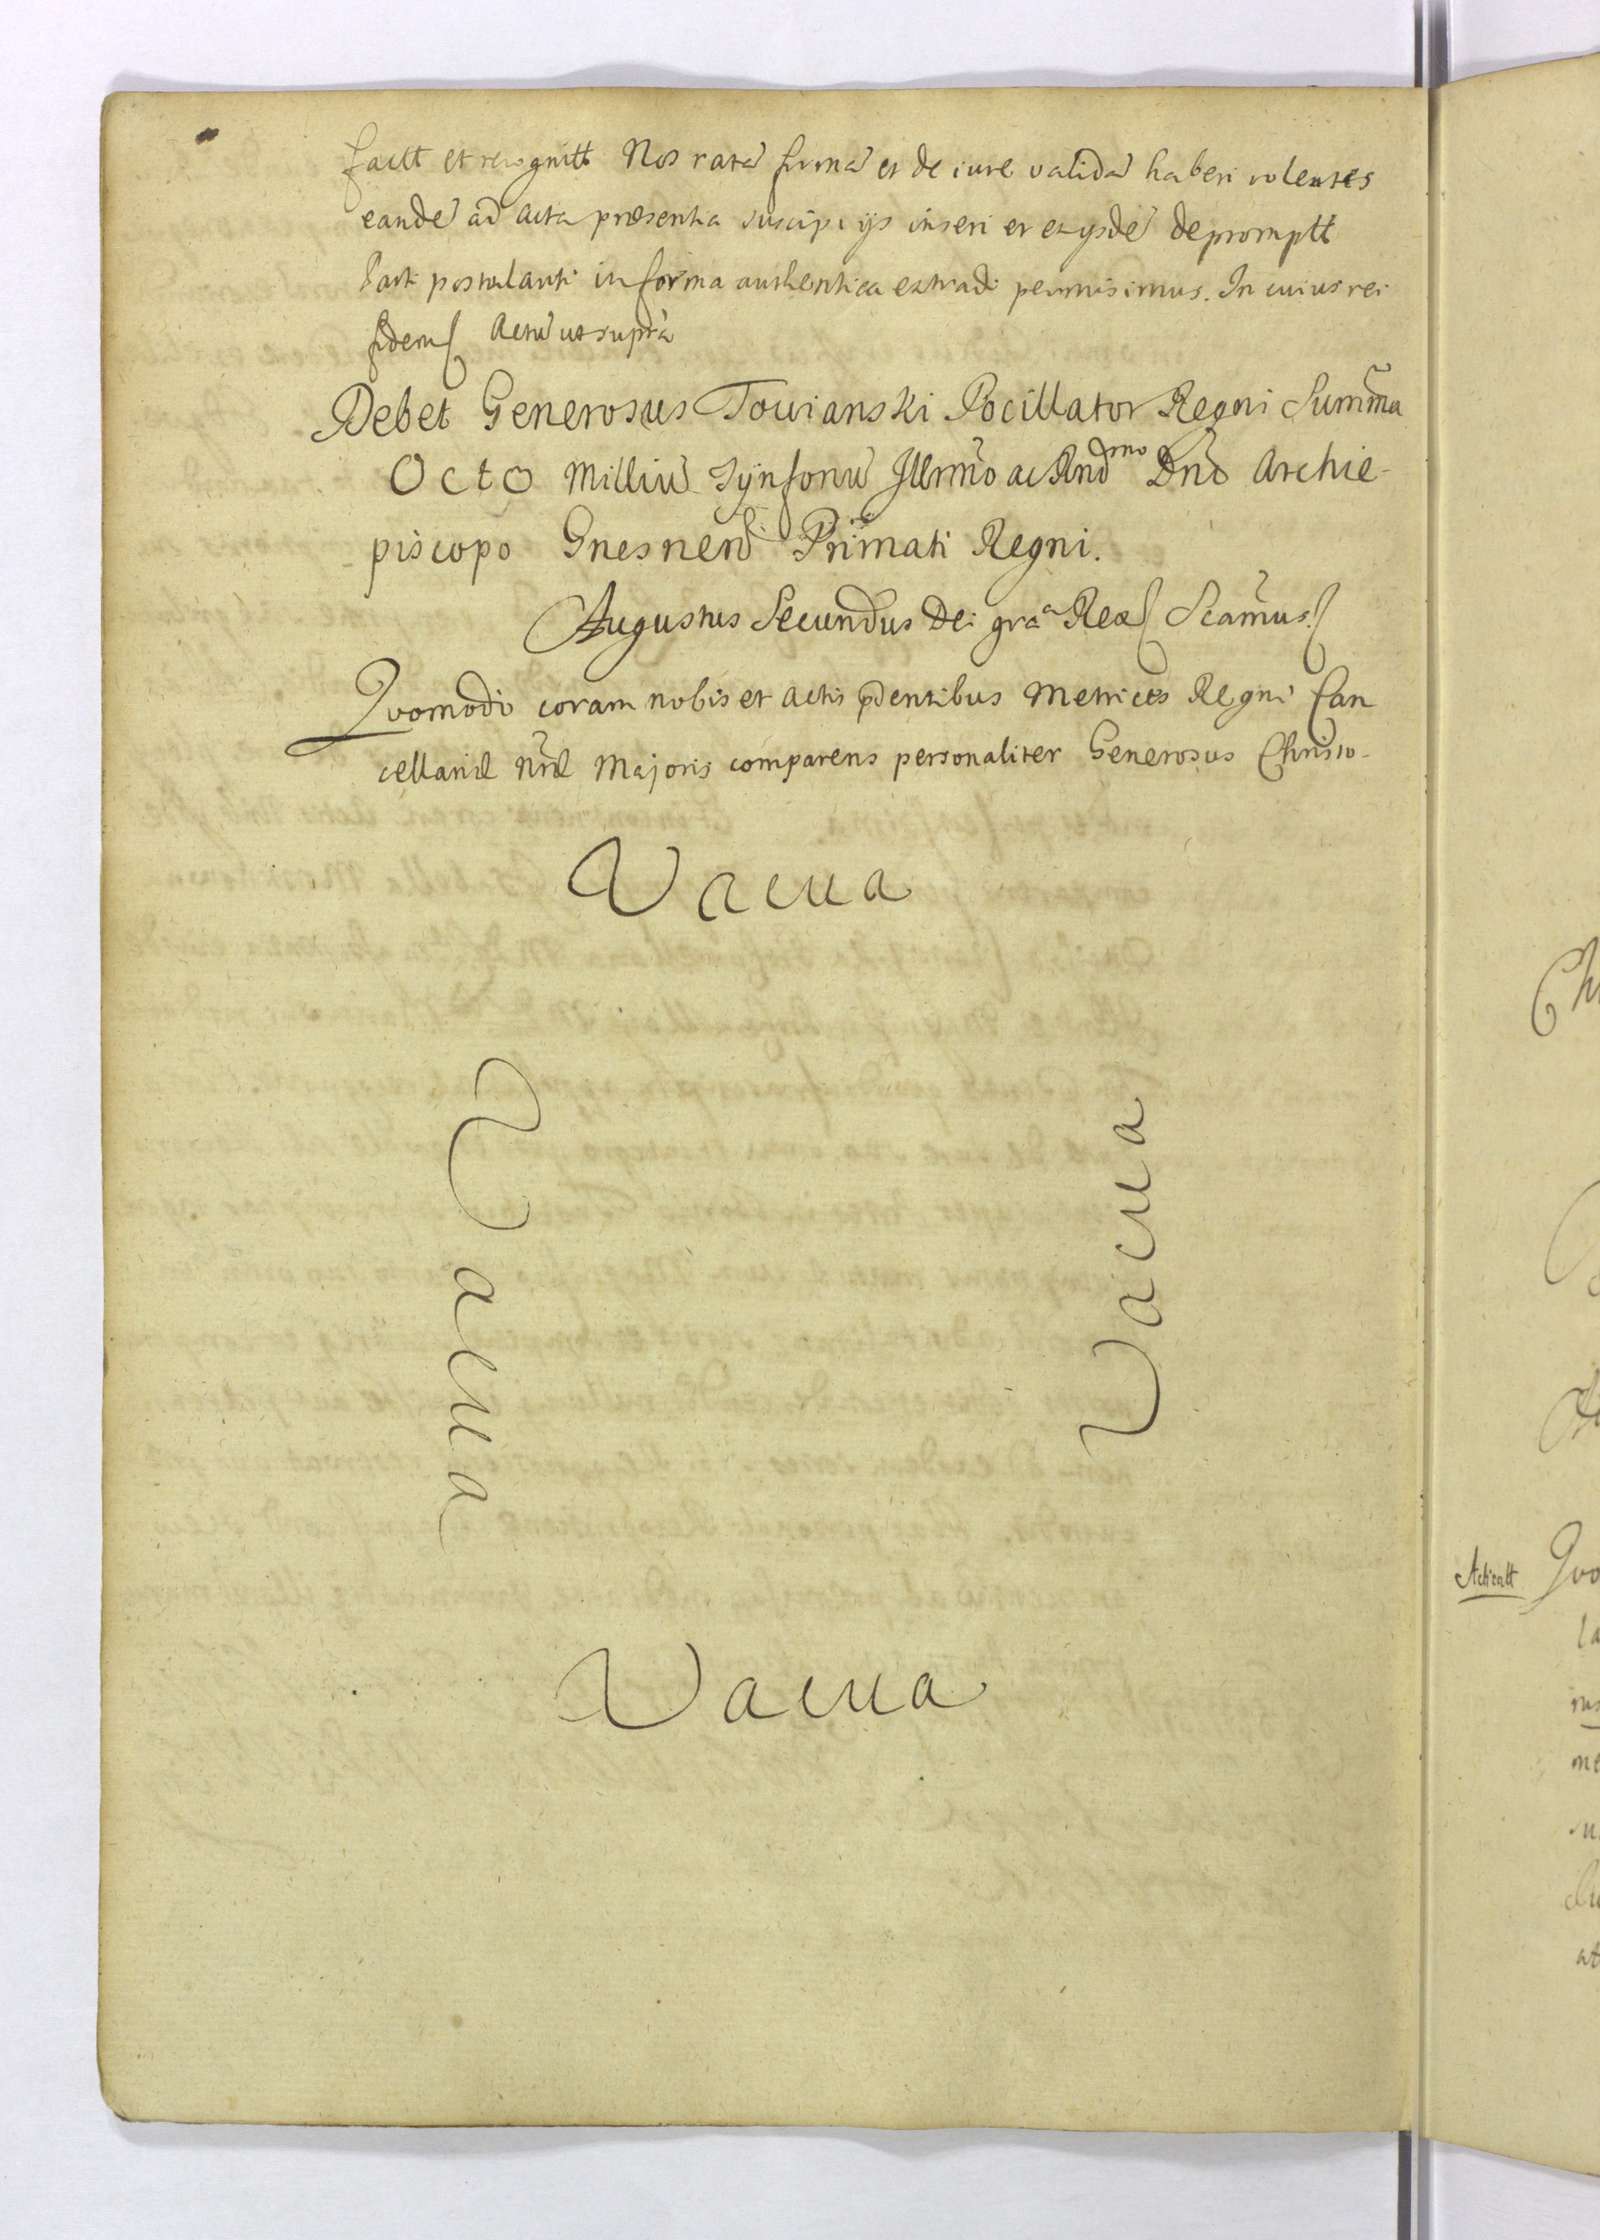 factt et recognitt Nos ratã firmã et de iure validã haberi volentes
eandẽ ad acta præsentia suscipi ijs inseri et ex ijsdẽ depromptt
Parti postulanti in forma authentica extradi permisimus. In cuius rei
fidem Actũ ut supra
Debet Generosus Towianski Pocillator Regni Sum̃a
Octo Milliũ Tynfonũ Illrm̃o ac Rnd̃mo Dño Archie-
piscopo Gnesnen Primati Regni.
Augustus Secundus Dei grã Rex Scim̃us
Quomodo coram nobis et actis pdentibus Metrices Regni Can
cellariæ Nrã Majoris comparens personaliter Generosus Christo-
Vacua
Vacua
Vacua
Vacua
Acticatt